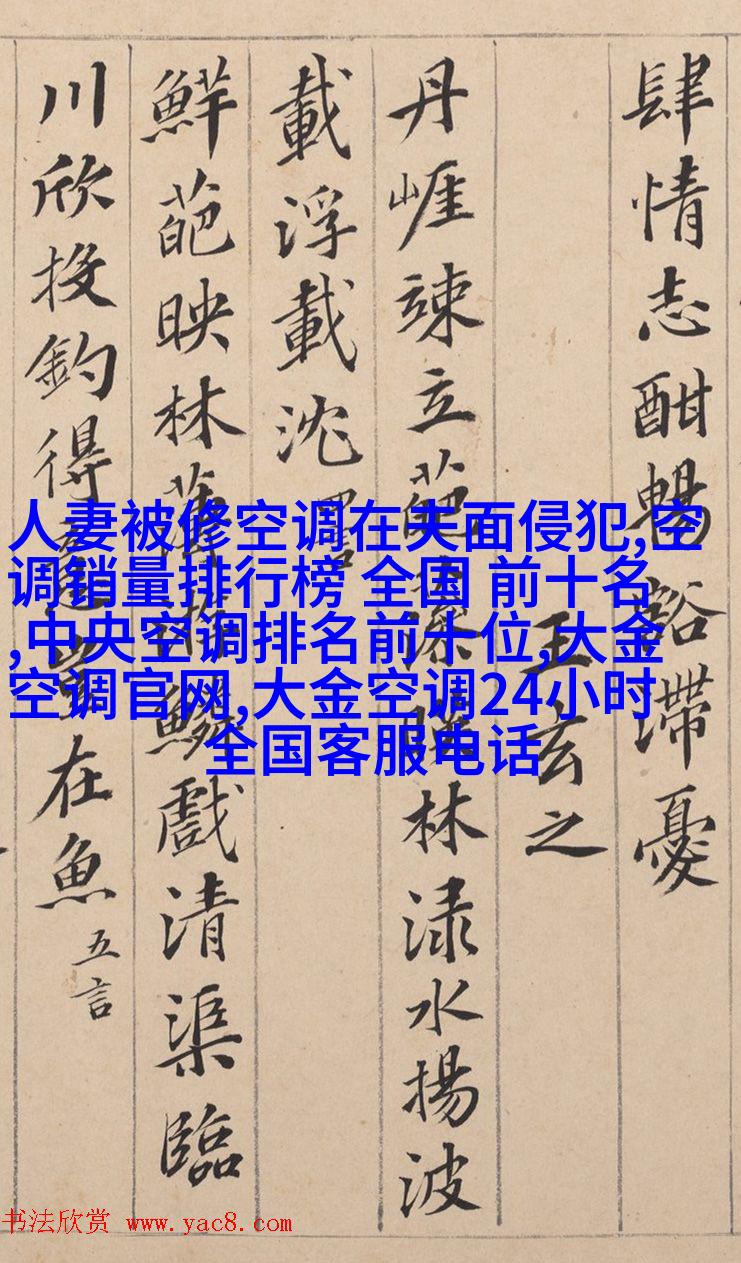 肆情志酣暢豁滯憂
王玄之
丹崕竦立葩藻暎林渌水揚波
載浮載沈 四言
鮮葩映林薄游鱗戲清渠臨
川欣投釣得意豈在魚 五言
人妻被修空调在夫面侵犯,空
调销量排行榜 全国 前十名
,中央空调排名前十位,大金
空调官网,大金空调24小时
全国客服电话
书法欣赏 www.yac8.com